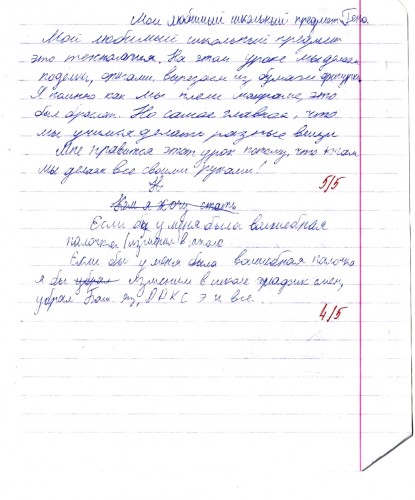 Мой любимый школьный предмет. Гена
Мой любимый школьный предмет
это технология. На этом уроке мы делаем
поделки, оригами, вырезаем из бумаги фигурки
Я помню как мы плели макраме, это
был браслет. Но самое главное, что
мы учимся делать разные вещи
Мне нравится этот урок потому, что там
мы делаем все своими руками!
5/5
Кем я хочу стать
Если бы у меня была волшебная
палочка (изменил в школе
Если бы у меня была волшебная палочка
я бы убрал изменил в школе график смен,
убрал Баш. яз, ДРКС Э и все...
4/5